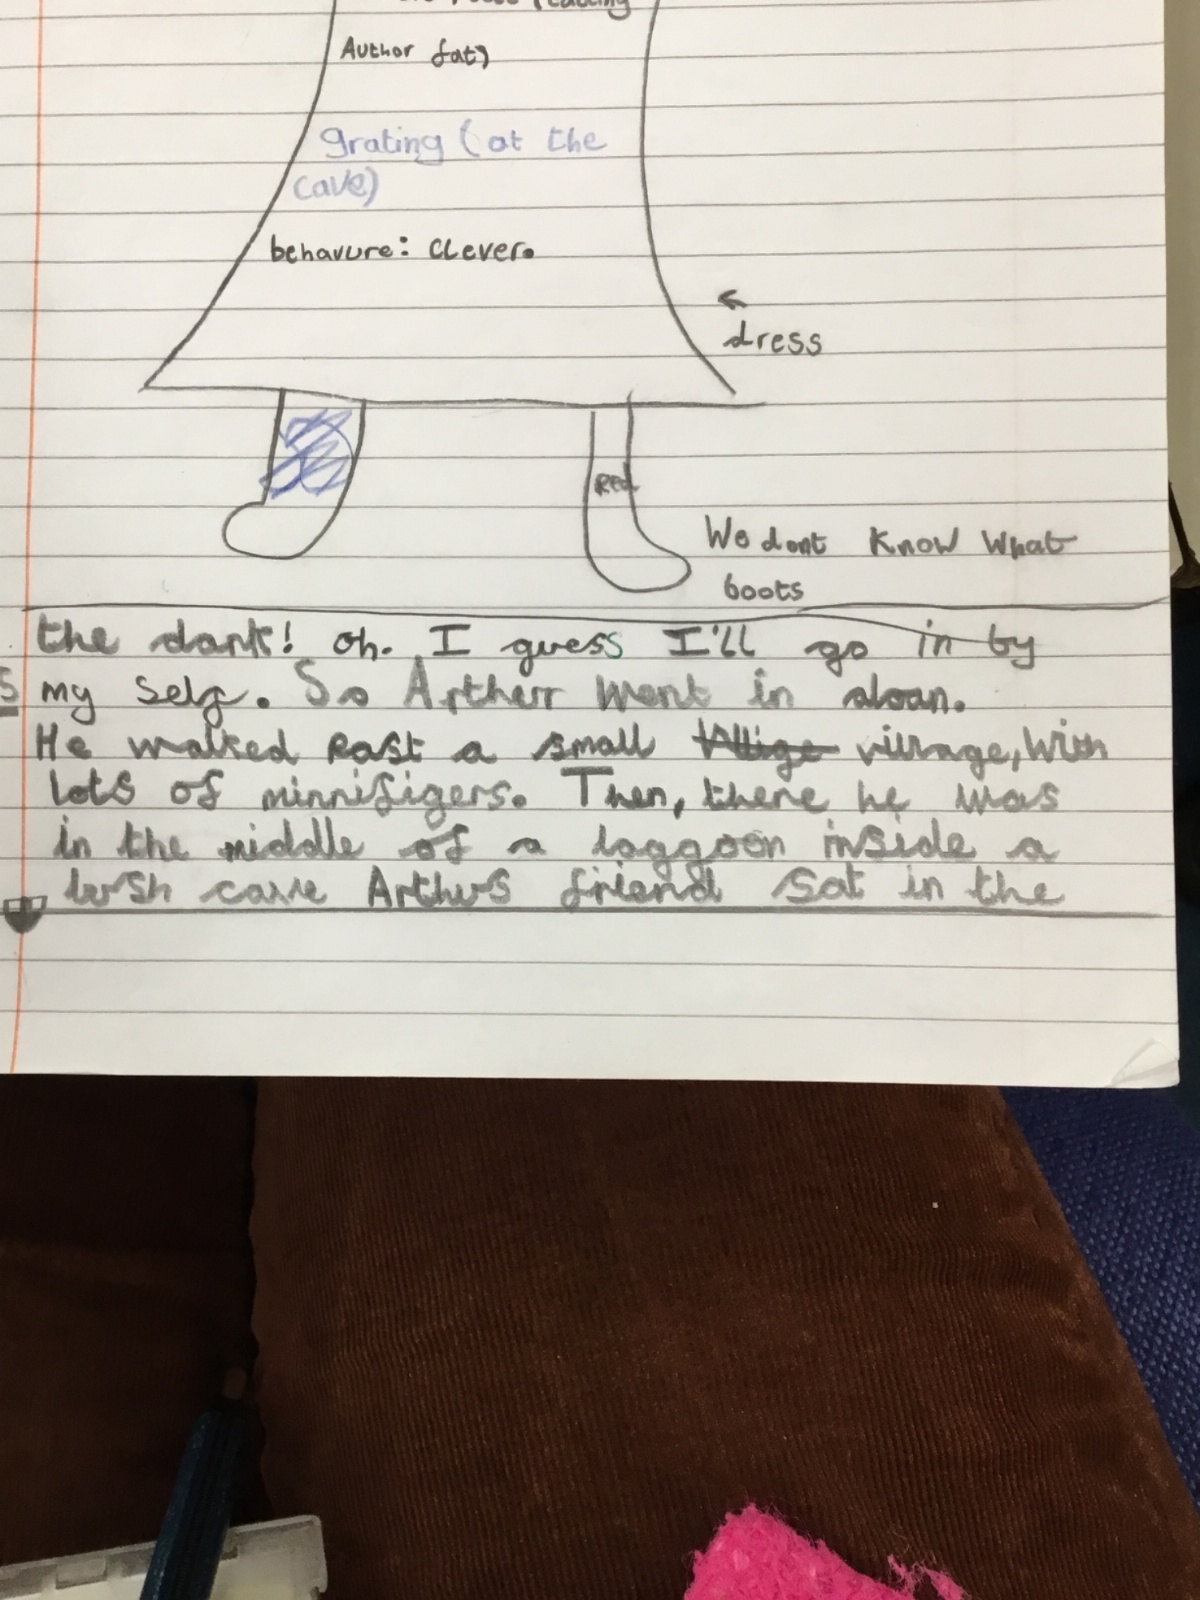 Author fat)
grating (at the
cave)
behavure: clever.
←
dress
Red
We dont know what
boots
the dark! oh. I guess I'll go in by
my self. So Artherr went in aloan.
He walked past a small village, with
lots of minnifigers. Then, there he was
in the middle of a laggoon inside a
lush cave Arthus friend sat in the